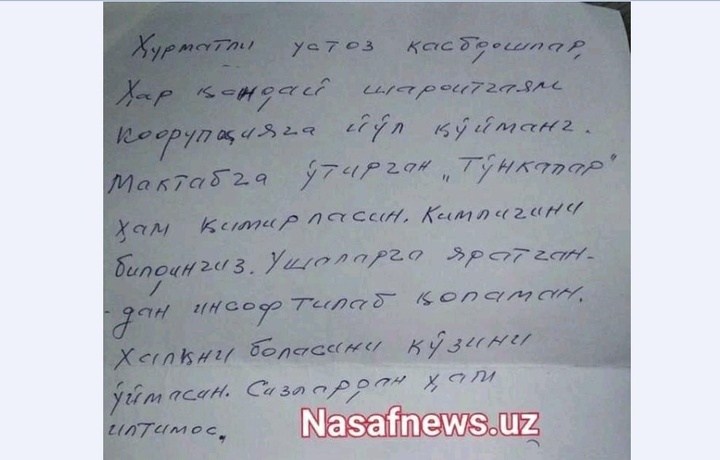 Ҳурматли устоз касбдошлар,
Ҳар қандай шароитгаям
коорупцияга йўл қўйманг.
Мактабга ўтирган „Тўнкалар"
ҳам қимирласин. Кимлигини
билдингиз. Ушаларга яратган-
дан инсоф тилаб қоламан.
Халқни боласини кўзини
ўймасин. Сизлардан ҳам
илтимос.
Nasafnews.uz